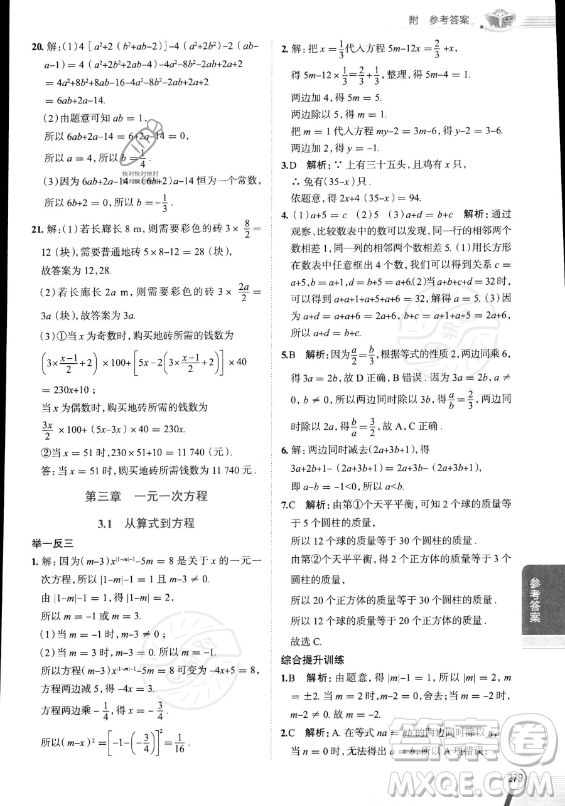 附 参考答案
20. 解：(1)4［a²+2（b²+ab-2）］-4（a²+2b²）-2（ab-
a-1）= 4a²+8b²+4ab-16-4a²-8b²-2ab+2a+2 =
6ab+2a-14.
(2)由题意可知 ab = 1,
所以 6ab+2a-14 = 6+2a-14 = 0,
所以 a = 4,所以 b = 1/4.
(3)因为 6ab+2a-14 =（6b+2）a-14 恒为一个常数,
所以 6b+2 = 0,所以 b = -1/3.
21. 解：(1)若长廊长 8 m，则需要彩色的砖 3× 8/2 =
12（块）,需要普通地砖 5×8-12 = 28（块）,
故答案为 12,28.
(2)若长廊长 2a m，则需要彩色的砖 3× 2a/2 =
3a（块）,故答案为 3a.
(3)①当 x 为奇数时，购买地砖所需的钱数为
(3× (x-1)/2 +2) ×100+[5x-(3× (x-1)/2 +2)]×40
= 230x+10;
当 x 为偶数时，购买地砖所需的钱数为
3x/2 ×100+（5x-3x）×40 = 230x.
②当 x = 51 时, 230×51+10 = 11 740（元）.
答：当 x = 51 时，购买地砖所需钱数为 11 740 元.
第三章 一元一次方程
3.1 从算式到方程
举一反三
1. 解：(1)因为（m-3）x^|1-m|-1-5m = 8 是关于 x 的一元
一次方程，所以|1-m|-1 = 1,且 m-3 ≠ 0,
所以|1-m|= 2,且 m ≠ 3,
所以 m = -1.
(2)当 m = -1 时, m-3 = -4,
所以原方程可变形为 -4x+5 = 8,
方程两边减 5,得-4x = 3,
方程两边乘 -1/4,得 x = -3/4.
所以（m-x）² = [-1-(-3/4)]² = 1/16.
2. 解：把 x = 1/3 代入方程 5m-12x = 2/3 +x,
得 5m-12× 1/3 = 2/3 + 1/3,整理，得 5m-4 = 1.
两边加 4,得 5m = 5.
两边除以 5,得 m = 1.
把 m = 1 代入方程 my-2 = 3m-6y,得 y-2 = 3-6y.
3.D 解析：∵ 上有三十五头，且鸡有 x 只,
∴ 兔有（35-x）只.
依题意，得 2x+4（35-x）= 94.
4. (1)a+5 = c (2)5 (3)a+d = b+c 解析：通过
观察、比较数表中的数可以发现，同一行的相邻两个
数相差 1,同一列的相邻两个数相差 5.(1)用长方形
在数表中任意框出 4 个数，可以表示出 a, c 的关系是
a+5 = c.
可以得到
a+d = b+c.
5.B 解析：因为 a/2 = b/3,根据等式的性质 2,两边同乘 6,
得 3a = 2b,故 A, C, D 正确，B 错误.
因为 3a = 2b,所以两边同时除以 3b,得 a/b = 2/3,两边同
时除以 2a,得 b/a = 3/2.
6. 解：两边同时减去（2a+3b+1）,得
3a+2b-1-（2a+3b+1）= 0,
所以 a-b-2 = 0,
7.C 解析：由第①个天平平衡，可知 2 个球体的质量
等于 5 个圆柱的质量,
所以 12 个球体的质量等于 30 个圆柱的质量.
由第②个天平平衡，可知 2 个正方体的质量等于
3 个圆柱的质量,
所以 20 个正方体的质量等于 30 个圆柱的质量,
所以 12 个球体的质量等于 20 个正方体的质量.
故选 C.
综合提升训练
1.B 解析：由题意，得|m|-1 = 1,即|m|= 2,解得 m =
±2. 当 m = -2 时，
2.C 解析：A. 在等式 na = nb 的两边同时除以 n,
当 n = 0 时，无法得到 a = b,所以 A 项错误；
参考答案
279